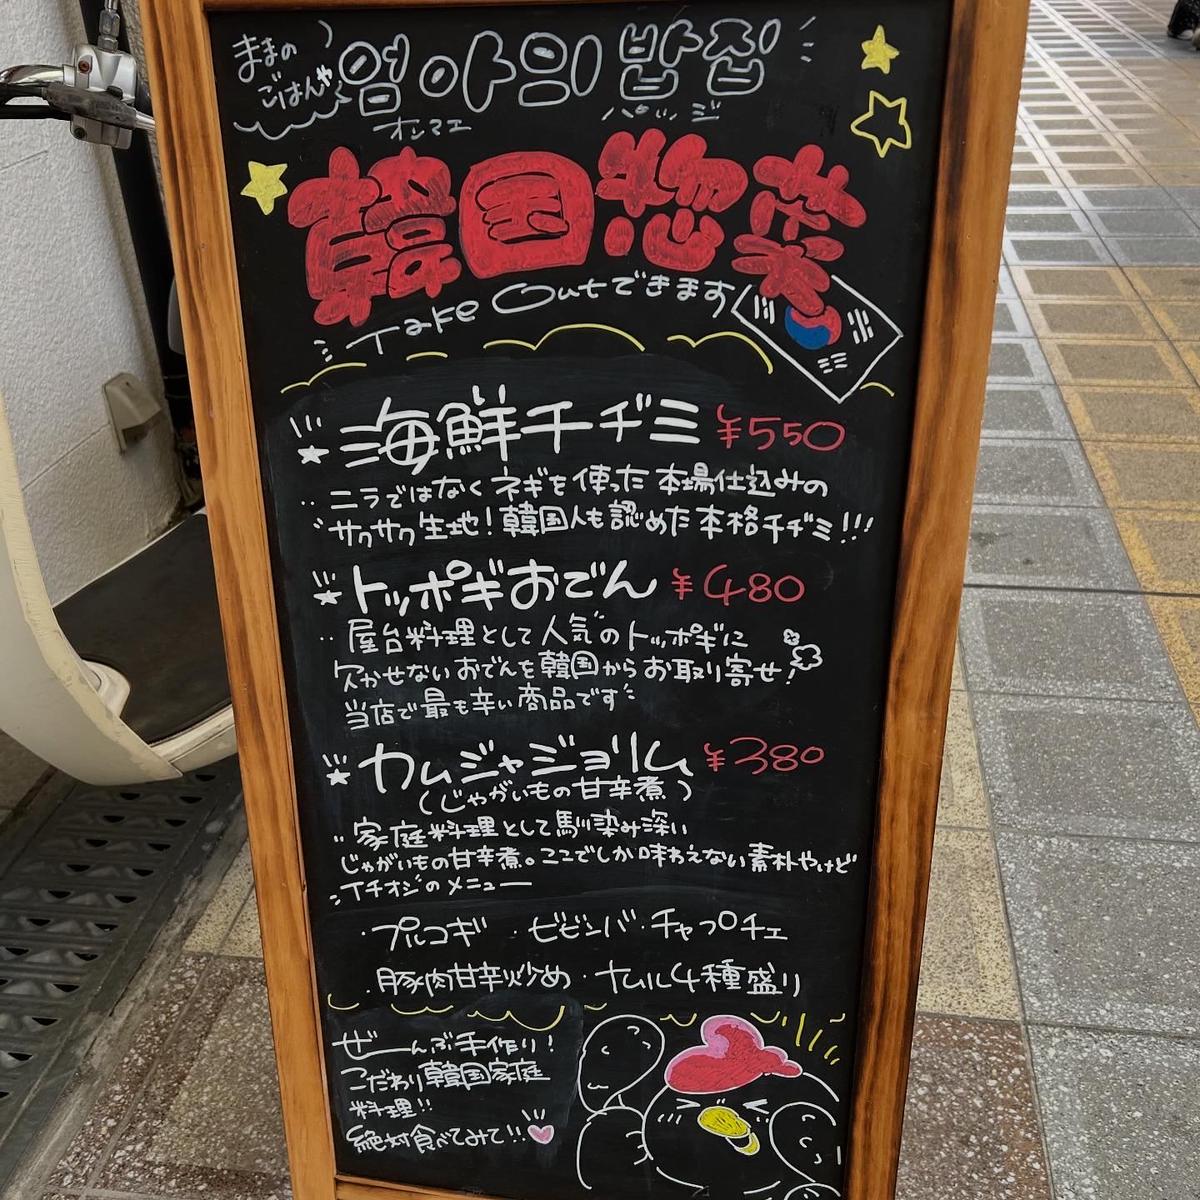 ままの
ごはんや
엄마의 밥집
オンマエ パッジ
韓国惣菜
Take Outできます
海鮮チヂミ ¥550
ニラではなくネギを使った本場仕込みの
サクサク生地！韓国人も認めた本格チヂミ!!!
トッポギおでん ¥480
屋台料理として人気のトッポギに
欠かせないおでんを韓国からお取り寄せ！
当店で最も辛い商品です
カムジャジョリム ¥380
（じゃがいもの甘辛煮）
家庭料理として馴染み深い
じゃがいもの甘辛煮。ここでしか味わえない素朴やけど
イチオシのメニュー
・プルコギ ・ビビンバ・チャプチェ
・豚肉甘辛炒め・ナムル4種盛り
ぜーんぶ手作り！
こだわり韓国家庭
料理!!
絶対食べてみて!!